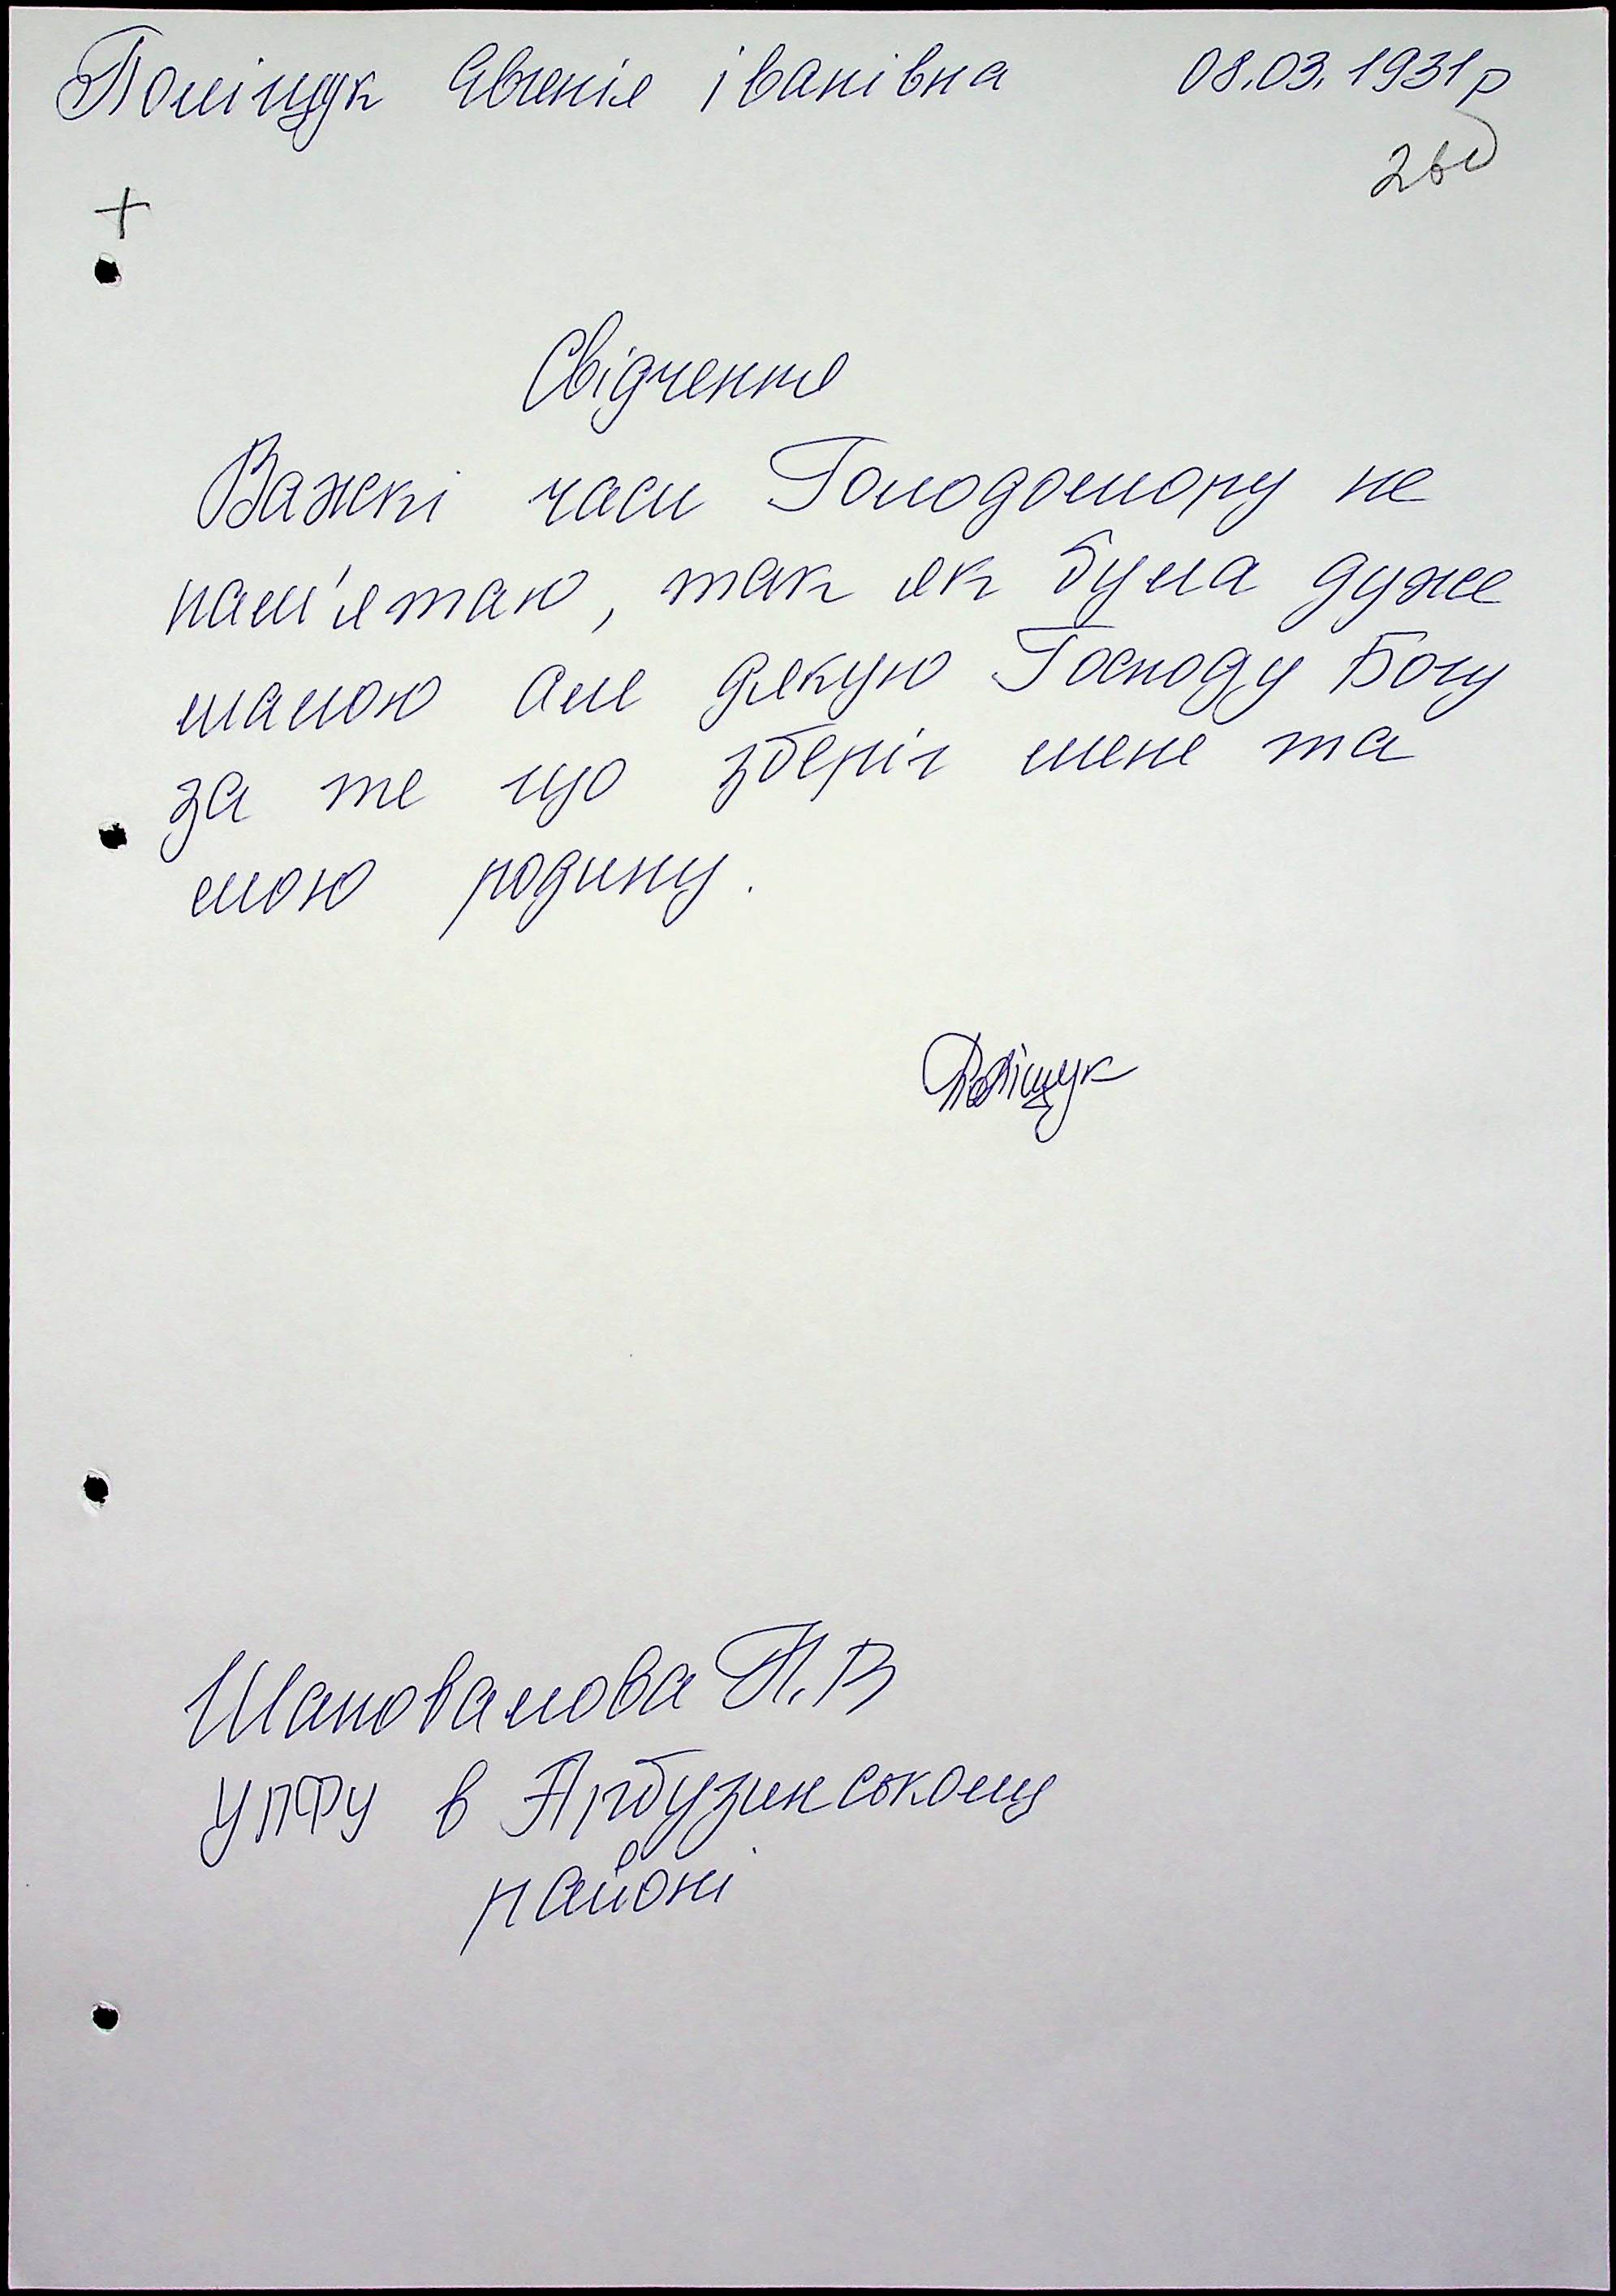 Поліщук Євгенія іванівна 08.03.1931р
+
Свідчення
Важкі часи Голодомору не
пам'ятаю, так як була дуже
малою але дякую Господу Богу
за те що зберіг мене та
мою родину.
Поліщук
Шаповалова Н.В
УПФУ в Арбузинському
районі